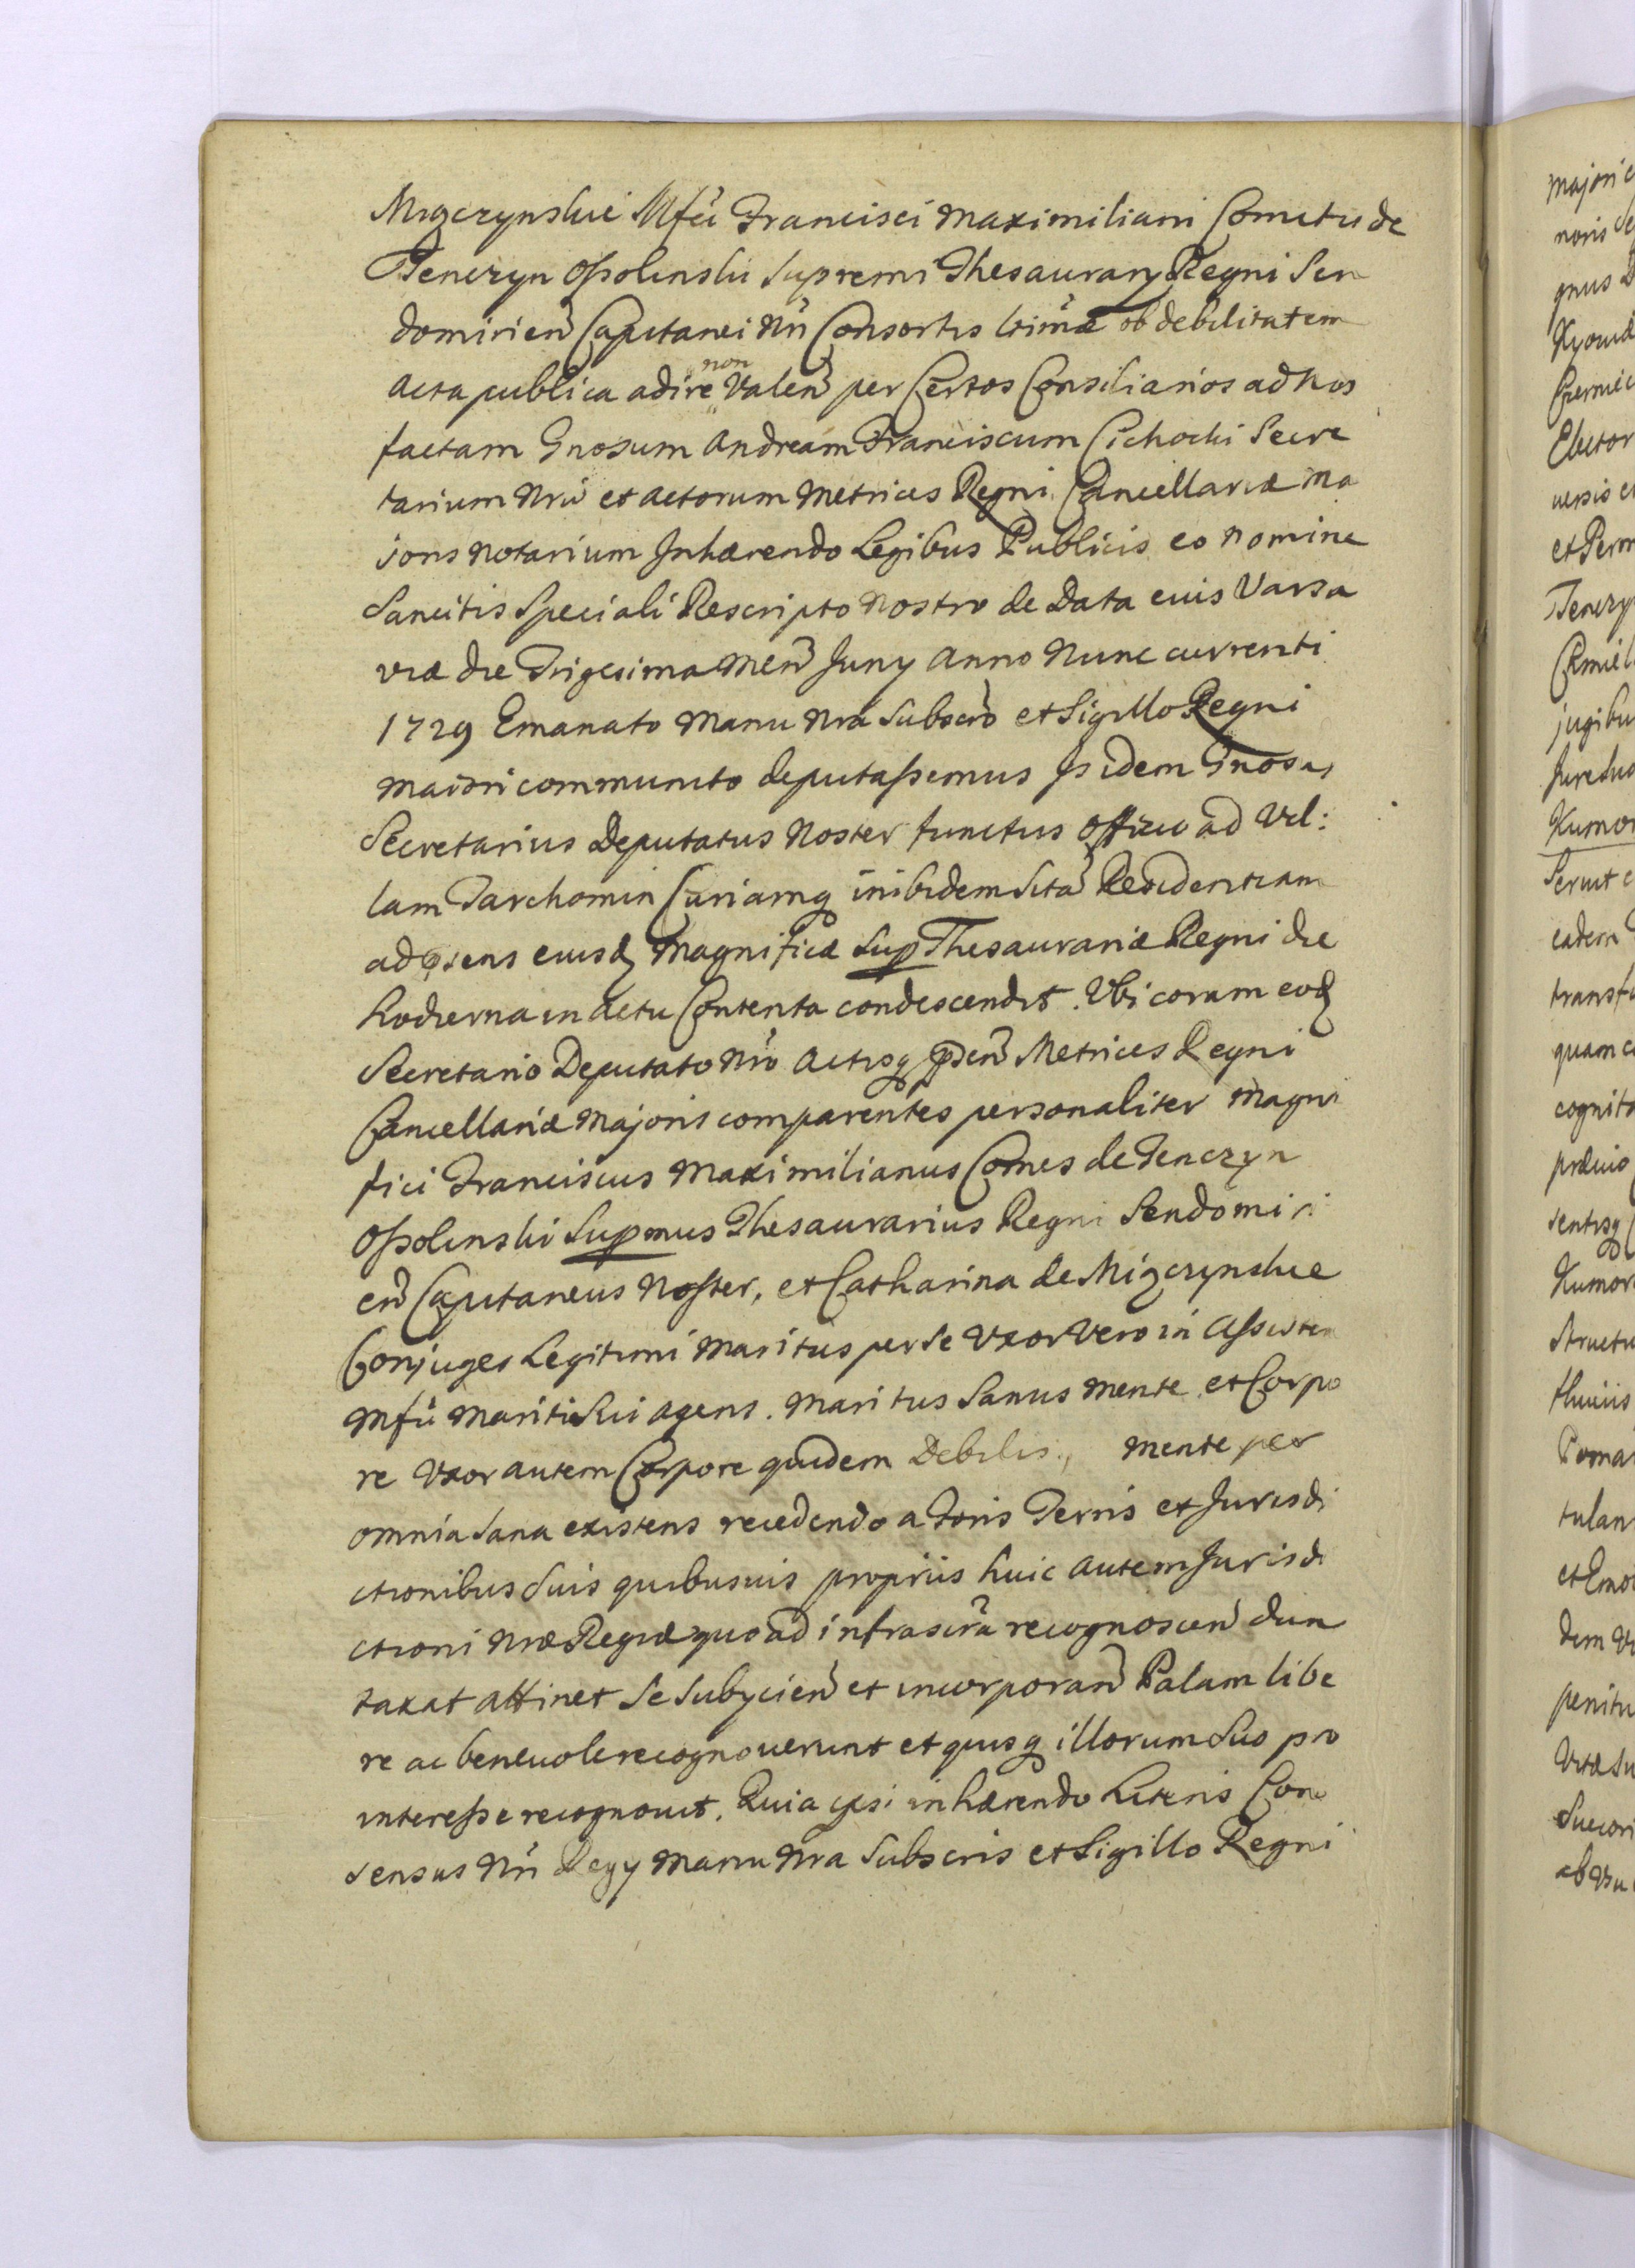 Miączynskie Mfci Francisci Maximiliani Comitis de
Tenczyn Ossolinski Supremi Thesaurarÿ Regni Sen
domirien Capitanei Nri Consortis ltimæ ob debilitatem
acta publica adire non Valen per Certos Consiliarios ad Nos
factam Gnosum Andream Franciscum Cichocki Secre
tarium Nrū et Actorum Metrices Regni Cancellariæ Ma
ioris Notarium Inhærendo Legibus Publicis eo nomine
Sancitis Speciali Rescripto Nostro de Data eius Varsa
viæ die Trigesima Men Junÿ Anno Nunc currenti
1729 Emanato Manu Nra Subscro et Sigillo Regni
maiori communito deputassemus Isidem Gnosus
Secretarius Deputatus Noster functus Officio ad Vil:
lam Tarchomin Curiamq inibidem Sitā Residentiam
ad præsens eiusd Magnificæ Sup Thesaurariæ Regni die
hodierna in Actu Contenta condescendit. Ubi coram eod
Secretario Deputato Nro Actisq præsen Metrices Regni
Cancellariæ Majoris comparentes personaliter Magni
fici Franciscus Maximilianus Comes de Tenczyn
Ossolinski Supmus Thesaurarius Regni Sendomiri
en Capitaneus Noster, et Catharina de Miączynskie
Conjuges Legitimi Maritus per se Uxor Vero in Assisten
Mfci Mariti Sui agens. Maritus Sanus mente et Corpo
re Uxor autem Corpore quidem Debilis, mente per
omnia Sana existens recedendo a Foris Terris et Jurisdi
ctionibus Suis quibusvis propriis huic autem Jurisdi
ctioni Nræ Regiæ quoad infrascra recognoscen dun
taxat attinet Se Subÿcien et incorporan Palam libe
re ac benevole recognoverunt et quisq illorum Suo pro
interesse recognovit. Quia ipsi inhærendo Literis Con
sensus Nri Regÿ Manu Nra Subscris et Sigillo Regni